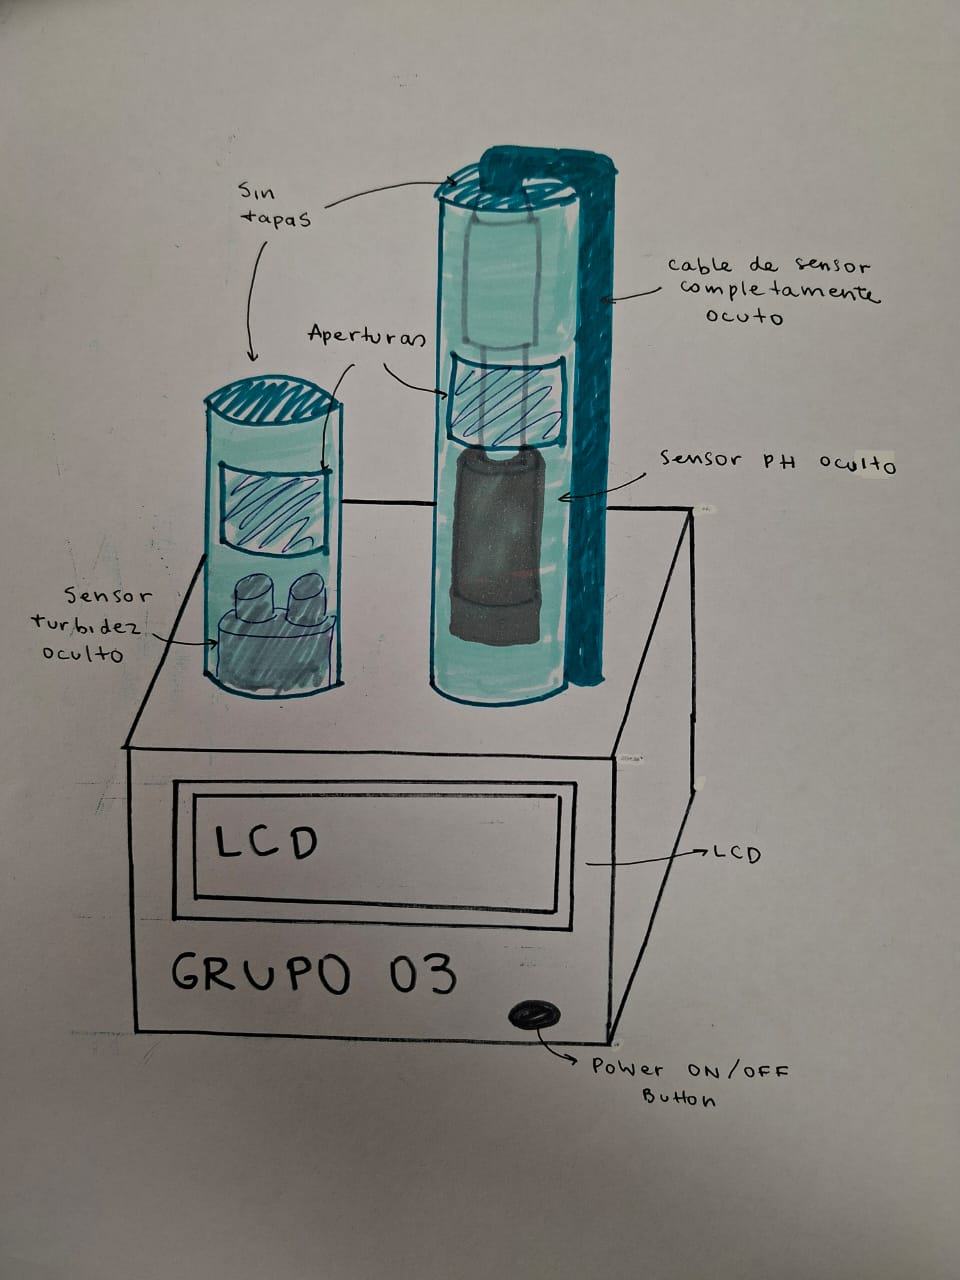 Sin
tapas
cable de sensor
completamente
ocuto
Aperturas
sensor PH oculto
Sensor
turbidez
oculto
LCD
LCD
GRUPO 03
Power ON/OFF
Button